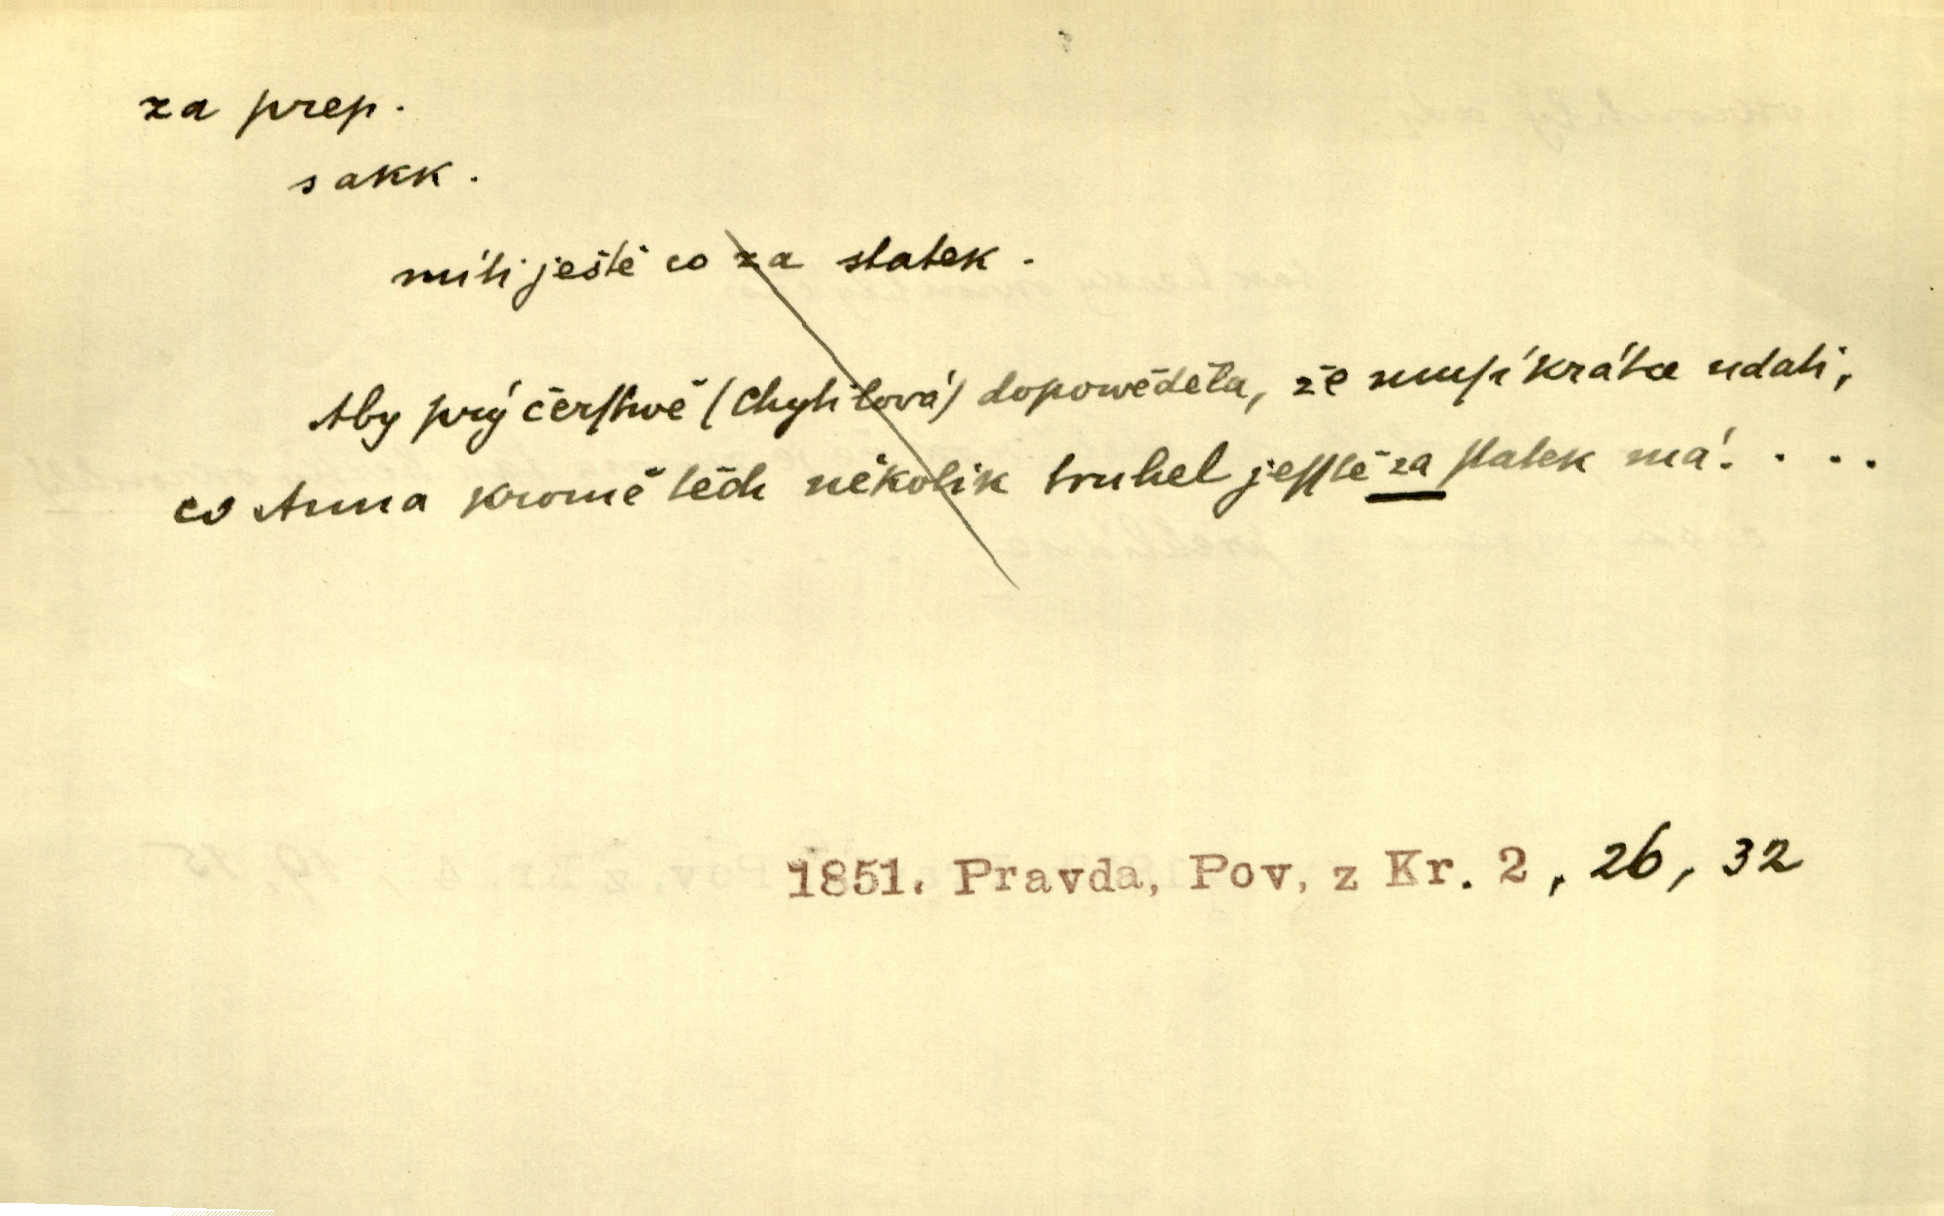 za prep.
s akk.
míti ještě co za statek.
Aby prý čerstwě (Chytilová) dopowěděla, že musí krátce udati,
co Anna kromě těch několik truhel jesstě za statek má. . . .
1851. Pravda, Pov. z Kr. 2, 26, 32